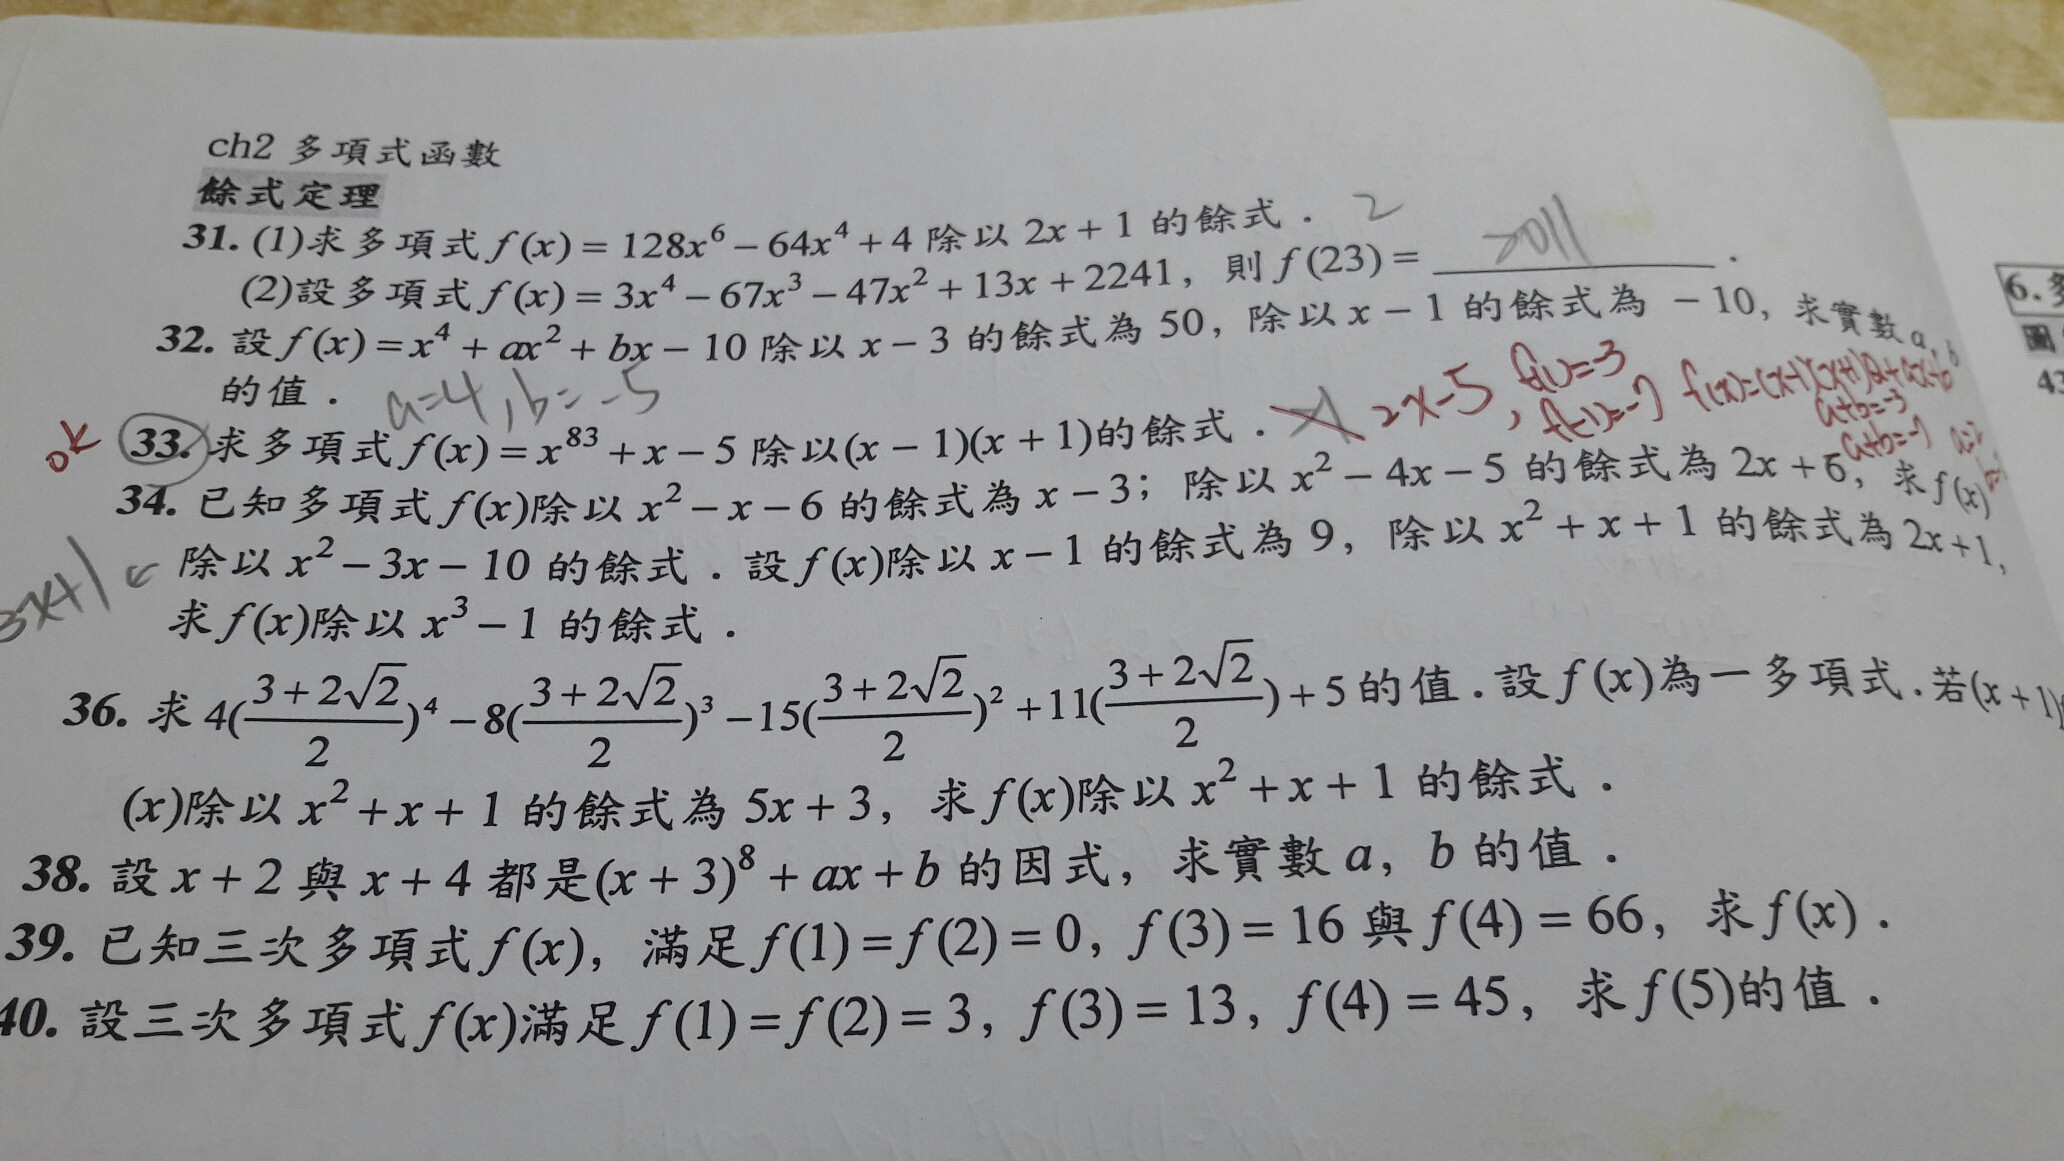 ch2 多項式函數
餘式定理
31. (1)求多項式 f(x) = 128x⁶ − 64x⁴ + 4 除以 2x + 1 的餘式． 2
(2)設多項式 f(x) = 3x⁴ − 67x³ − 47x² + 13x + 2241，則 f(23) = 2011 ．
32. 設 f(x) = x⁴ + ax² + bx − 10 除以 x − 3 的餘式為 50，除以 x − 1 的餘式為 − 10，求實數 a，b
的值． a=4, b=-5
ok 33. 求多項式 f(x) = x⁸³ + x − 5 除以(x − 1)(x + 1)的餘式． 2x-5, f(1)=-3
f(-1)=-7
f(x)=(x-1)(x+1)Q+ax+b
a+b=-3
-a+b=-7
a=2
34. 已知多項式 f(x)除以 x² − x − 6 的餘式為 x − 3；除以 x² − 4x − 5 的餘式為 2x + 6，求 f(x)
除以 x² − 3x − 10 的餘式．設 f(x)除以 x − 1 的餘式為 9，除以 x² + x + 1 的餘式為 2x + 1，
3x+1 ←
求 f(x)除以 x³ − 1 的餘式．
36. 求 4((3 + 2√2)/2)⁴ − 8((3 + 2√2)/2)³ − 15((3 + 2√2)/2)² + 11((3 + 2√2)/2) + 5 的值．設 f(x)為一多項式．若(x + 1)f
(x)除以 x² + x + 1 的餘式為 5x + 3，求 f(x)除以 x² + x + 1 的餘式．
38. 設 x + 2 與 x + 4 都是(x + 3)⁸ + ax + b 的因式，求實數 a，b 的值．
39. 已知三次多項式 f(x)，滿足 f(1) = f(2) = 0，f(3) = 16 與 f(4) = 66，求 f(x)．
40. 設三次多項式 f(x)滿足 f(1) = f(2) = 3，f(3) = 13，f(4) = 45，求 f(5)的值．
6.
圖
43